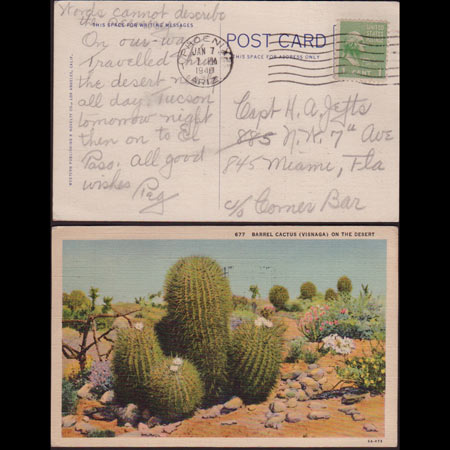 Words cannot describe
this
THIS SPACE FOR WRITING MESSAGES
On our way
Travelled thru
the desert now
all day. Tucson
tomorrow night
then on to El
Paso. All good
wishes Peg
POST CARD
THIS SPACE FOR ADDRESS ONLY
PHOENIX
JAN 7
1940
ARIZ.
1 CENT
Capt H. A. Jefts
885 N.W. 7th Ave
845 Miami, Fla
c/o Corner Bar
677 BARREL CACTUS (VISNAGA) ON THE DESERT